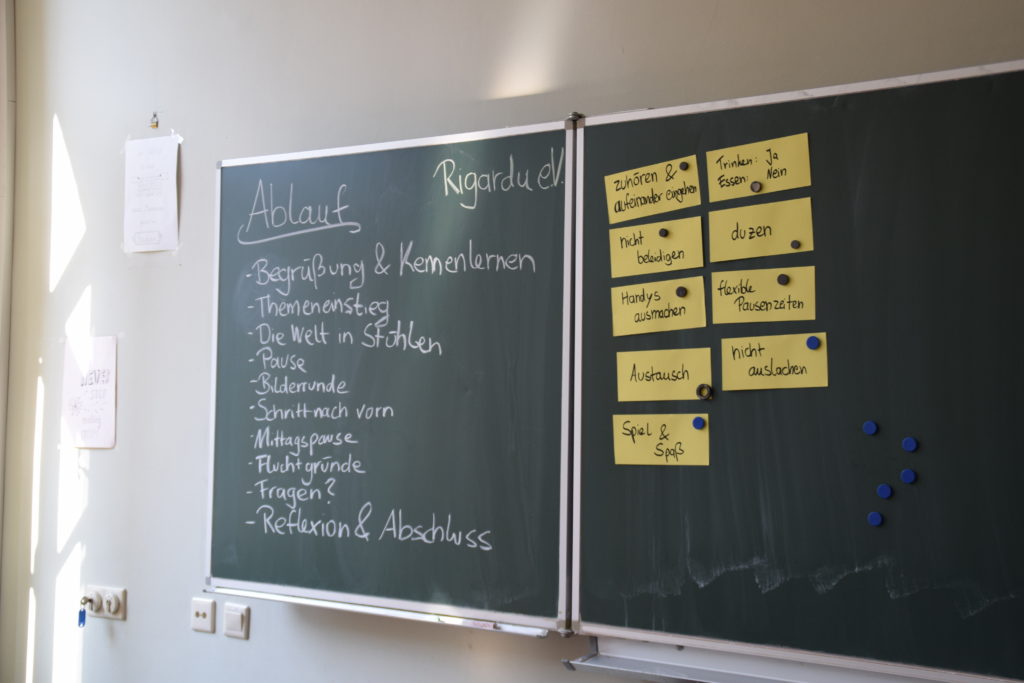 Rigardu e.V.
Ablauf
- Begrüßung & Kennenlernen
- Themeneinstieg
- Die Welt in Stühlen
- Pause
- Bilderrunde
- Schritt nach vorn
- Mittagspause
- Fluchtgründe
- Fragen?
- Reflexion & Abschluss
zuhören &
aufeinander eingehen
nicht
beleidigen
Handys
ausmachen
Austausch
Spiel &
Spaß
Trinken: Ja
Essen: Nein
duzen
flexible
Pausenzeiten
nicht
auslachen